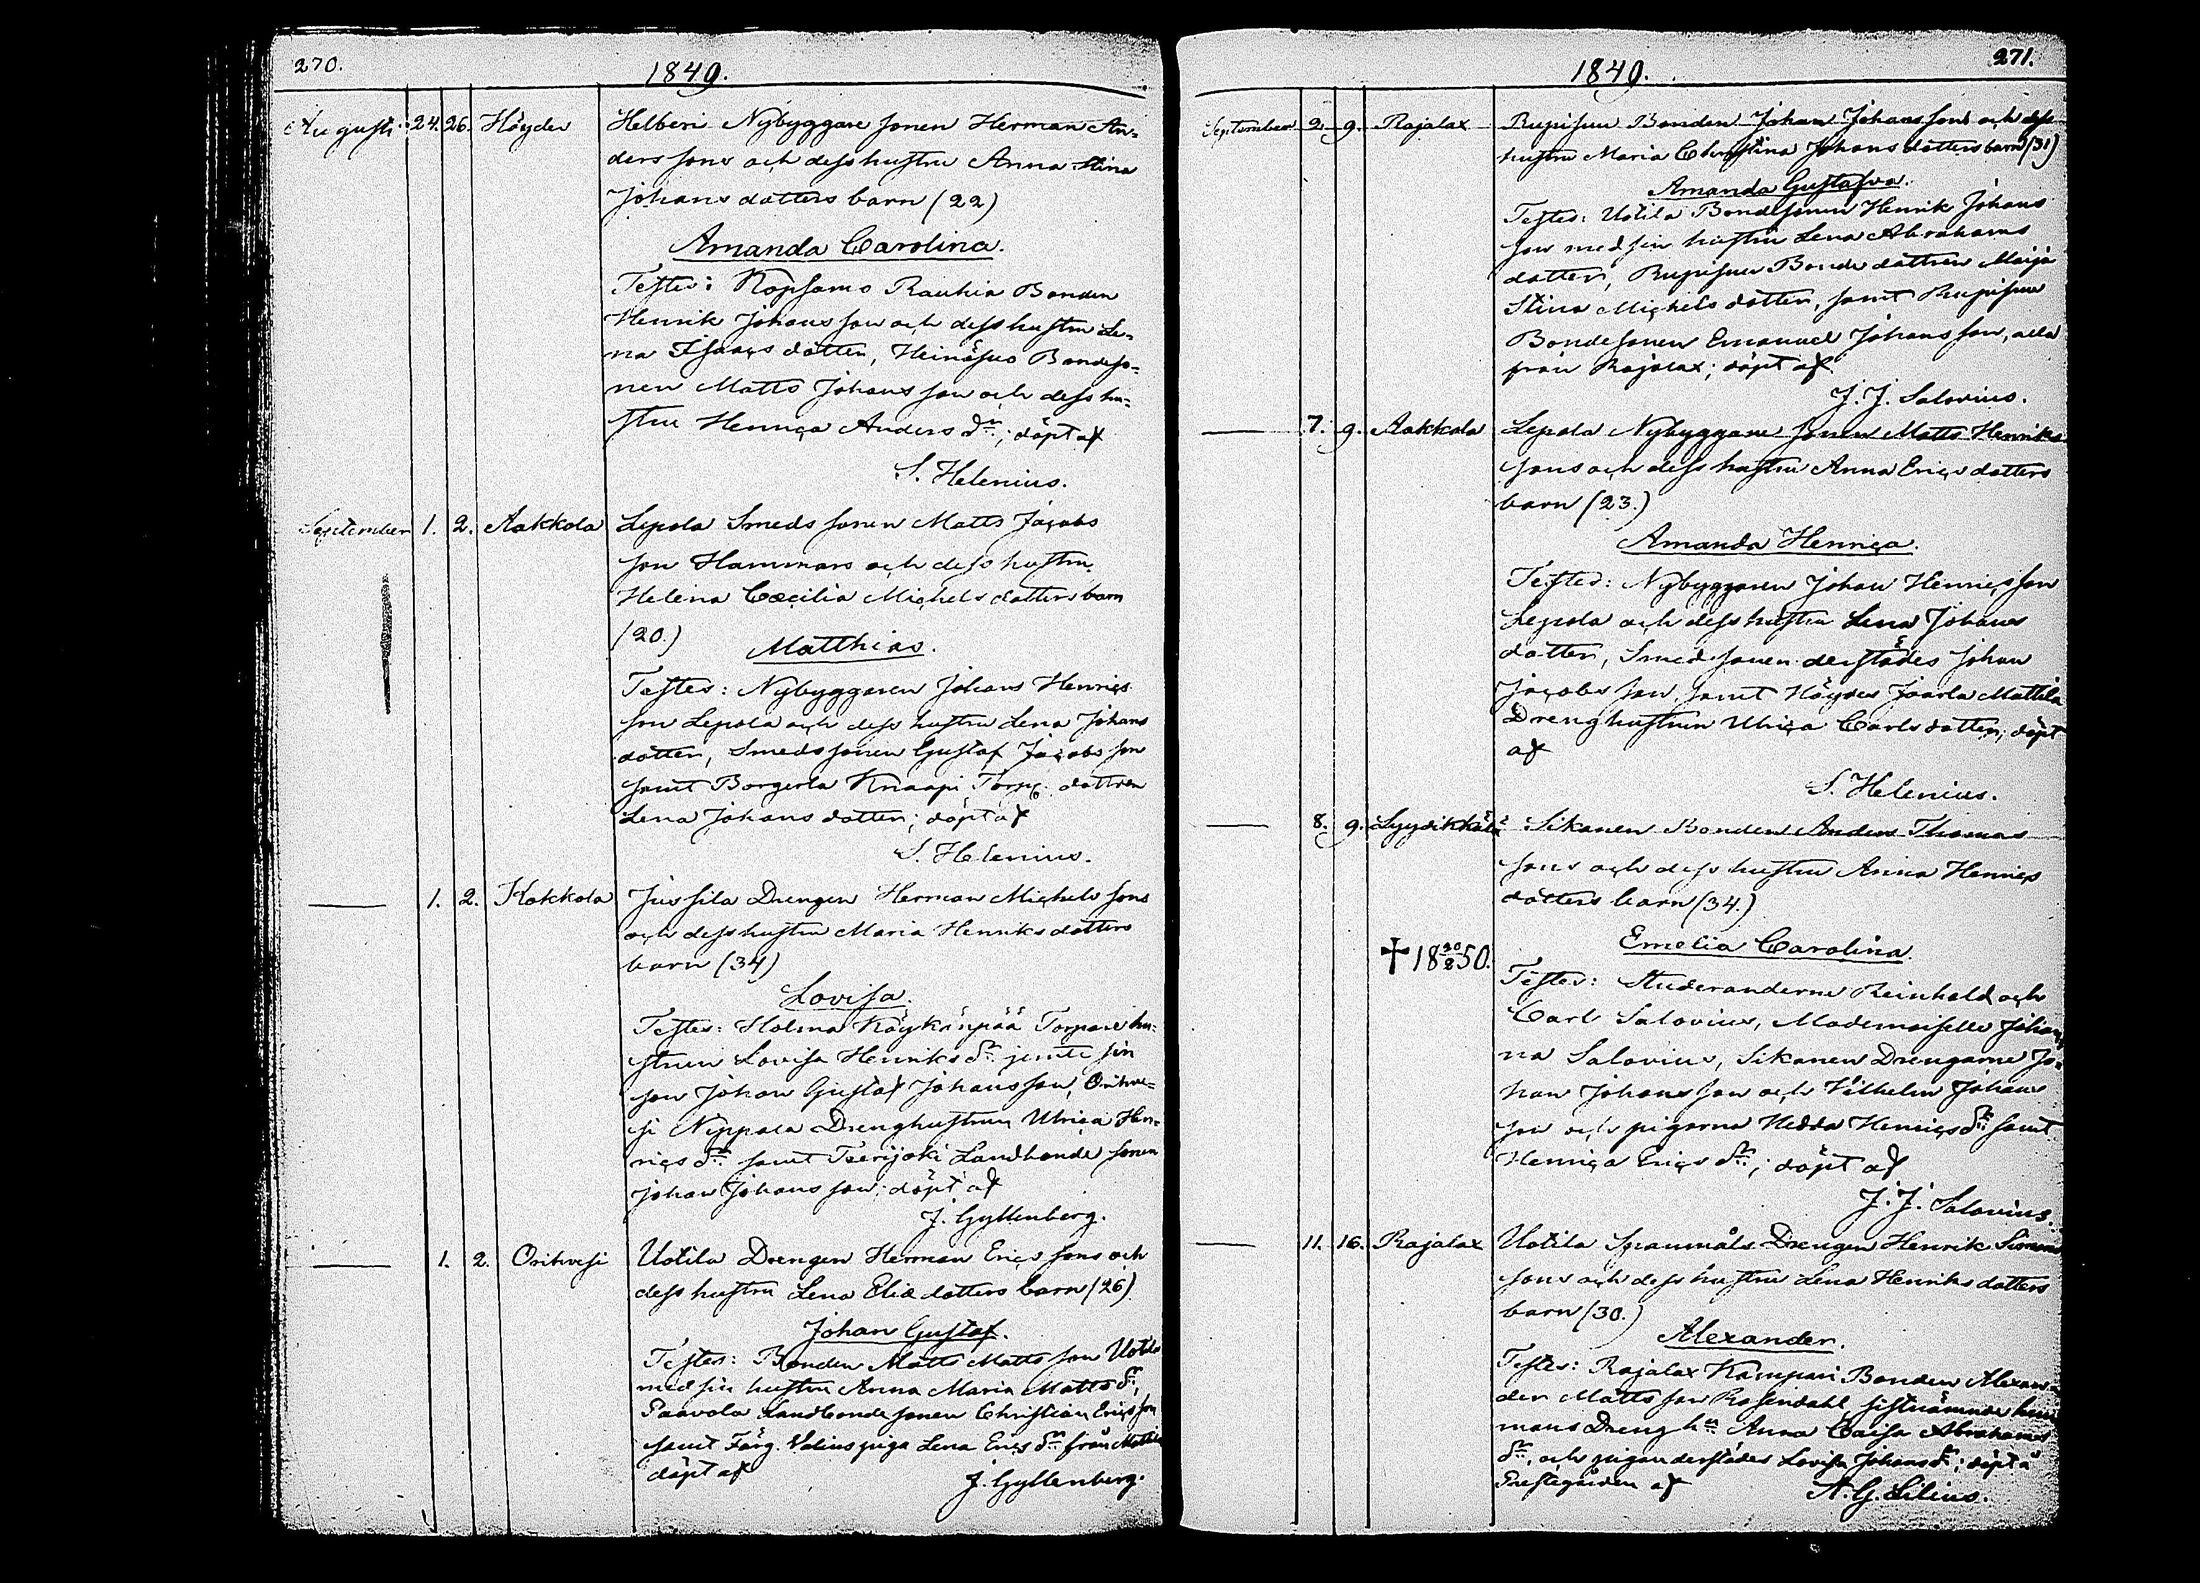 270.
1849.
Augusti 24. 26. Höyde Helberi Nybyggare sonen Herman An-
ders sons och dess hustru Anna Stina
Johans dotters barn (22)
Amanda Carolina.
Testes: Kopsamo Rauhia Bonden
Henrik Johans son och dess hustru Le-
na Isaacs dotter, Heinäsuo Bondeso-
nen Matts Johans son och dess hu-
stru Henrica Anders dr; döpt af
S. Helenius.
September 1. 2. Aakkola Lepola Smeds sonen Matts Jacobs
son Hammars och dess hustru
Helena Cæcilia Michels dotters barn
(20.)
Matthias.
Testes: Nybyggaren Johans Henrics
son Lepola och dess hustru Lena Johans
dotter, Smeds sonen Gustaf Jacobs son
samt Borgerla Knaapi Torp. dottren
Lena Johans dotter; döpt af
S. Helenius.
— 1. 2. Kakkola Jussila Drengen Herman Michels sons
och dess hustru Maria Henriks dotters
barn (34)
Lovisa.
Testes: Holma Köykänpää Torpare hu-
strun Lovisa Henriks dr jemte sin
son Johan Gustaf Johans son, Orihve-
si Nippala Drenghustrun Ulrica Hen-
rics dr samt Terijoki Landbonde sonen
Johan Johans son; döpt af
J. Gyllenberg.
— 1. 2. Orihvesi Uotila Drengen Herman Erics sons och
dess hustru Lena Eliæ dotters barn (26)
Johan Gustaf.
Testes: Bonden Matts Matts son Uotila
med sin hustru Anna Maria Matts dr,
Paavola Landbonde sonen Christian Erics son
samt Färg. Valins piga Lena Erics dr från
döpt af
J. Gyllenberg.
271.
1849.
September 2. 9. Rajalax Rupisuu Bonden Johan Johans sons och dess
hustru Maria Christina Johans dotters barn (31)
Amanda Gustafva.
Testes: Uotila Bondesonen Henrik Johans
son med sin hustru Lena Abrahams
dotter, Rupisuu Bonde dottren Maija
Stina Michels dotter, samt Rupisuu
Bondesonen Emanuel Johans son, alla
från Rajalax; döpt af
J. J. Salovius.
— 7. 9. Aakkola Lepola Nybyggare sonen Matts Henriks
sons och dess hustru Anna Erics dotters
barn (23.)
Amanda Henrica.
Testes: Nybyggaren Johan Henrics son
Lepola och dess hustru Lena Johans
dotter, Smed sonen derstädes Johan
Jacobs son, samt Höydes Jaarla Mattila
Drenghustrun Ulrica Carls dotter; döpt
af
S. Helenius.
— 8. 9. Lyydikkälä Sikanen Bonden Anders Thomas
sons och dess hustru Anna Henrics
dotters barn (34.)
Emelia Carolina.
† 18 20/2 50.
Testes: Studeranderne Reinhold och
Carl Salovius, Mademoiselle Johan-
na Salovius, Sikanen Drengarne Jo-
han Johans son och Vilhelm Johans
son och pigorna Hedda Henrics dr samt
Henrica Erics dr; döpt af
J. J. Salovius.
— 11. 16. Rajalax Uotila Spanmåls Drengen Henrik Simons
sons och dess hustru Lena Henriks dotters
barn (30.)
Alexander.
Testes: Rajalax Kampari Bonden Alexan-
der Matts son Rosendahl sistnämnde hem
mans Dreng hu Anna Caisa Abrahams
dr, och pigan derstädes Lovisa Johans dr; döpt å
Prestegården af
A. G. Lilius.